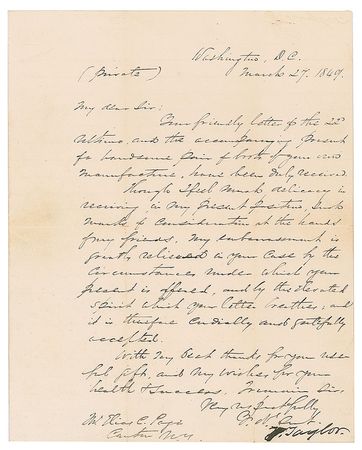 Washington, D.C.
(Private) March 27. 1849.
My dear Sir:
Your friendly letter of the 22d
ultimo, and the accompanying present
of a handsome pair of boots of your own
manufacture, have been duly received.
Though I feel much delicacy in
receiving in my present position such
marks of consideration at the hands
of my friends, my embarrassment is
greatly relieved in your case by the
circumstances under which your
present is offered, and by the elevated
spirit which your letter breathes, and
it is therefore cordially and gratefully
accepted.
With my best thanks for your use-
ful gift, and my wishes for your
health & success, I remain Sir,
Very respectfully
Yr. Obt. Servt.
Z. Taylor.
Mr C. Page
N.Y.